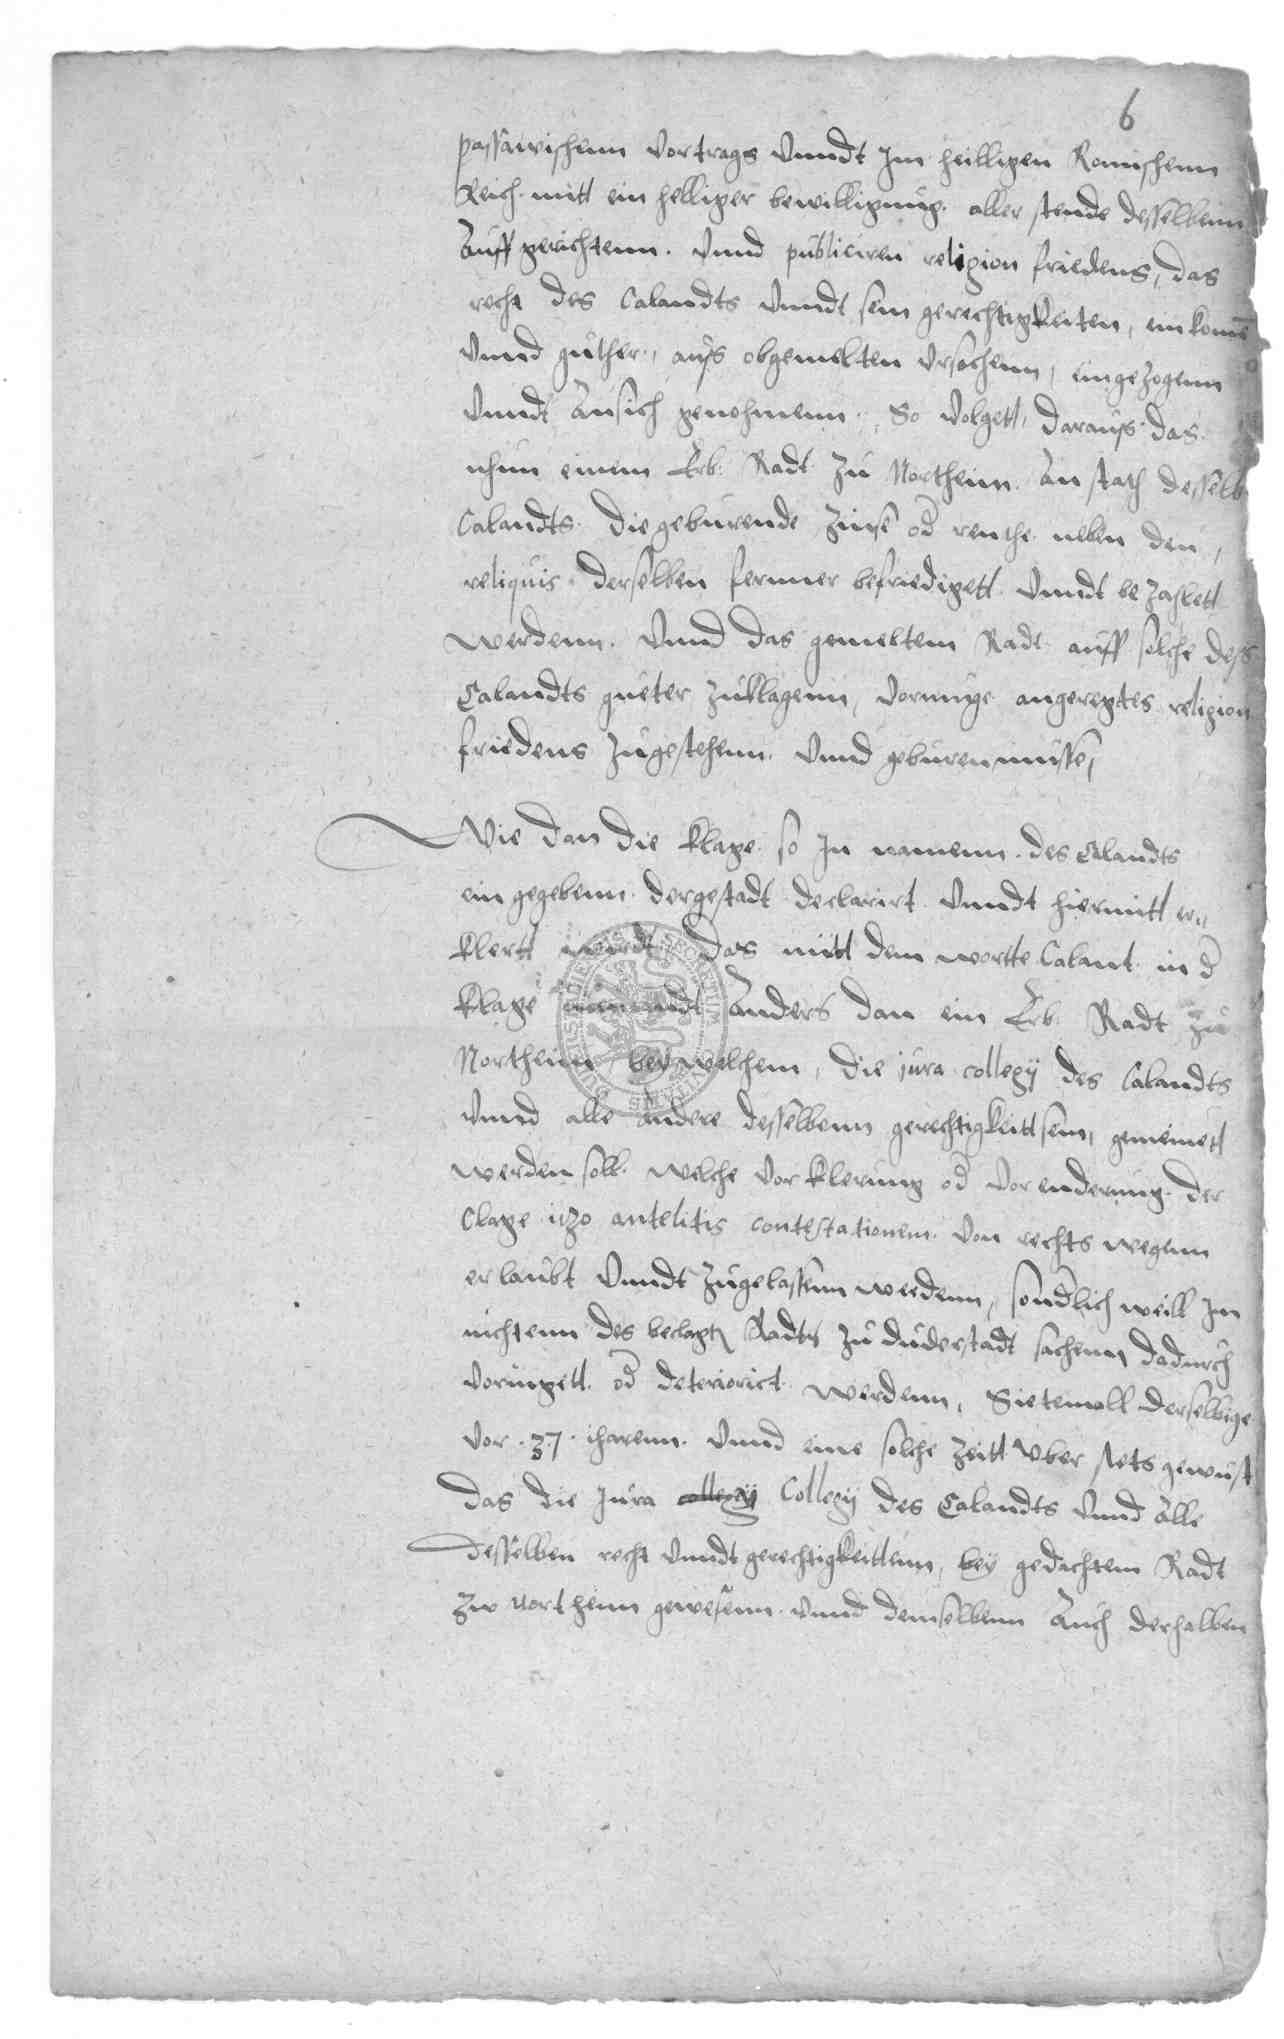 6
passawischenn vortrags vnndt Im heilligen Romischenn
Reich mitt ein helliger bewilligung aller stende desselbenn
Auffgerichtenn. vnnd publiciren religion friedens, das
recht des Calandts vnndt sein gerechtigkeiten, ein kome
vnnd guther, auss obgemelten vrsachenn, eingezogenn
vnndt Ansich genohmenn. So volgett, darauss das
nhun einem Erb: Radt zu Northeim Anstath desselb
Calandts die geburende Zinse od renthe neben den,
reliquis derselben fernner befriedigett vnndt bezahlett
werdenn. Vnnd das gemeltem Radt auff solche dess
Calandts gueter zuklagenn, vormuge angeregtes religion
friedens zugestehenn. Vnnd geburen musse,
Wie dan die klage so In namenn des Calandts
eingegebenn dergestadt declarirt vnndt hiermitt er
klertt wirdt das mitt dem wortte Calant in d
klage niemandt Anders dan ein Erb: Radt zu
Northeim bey welchem, die jura collegij des Calandts
vnnd alle Andere desselbenn gerechtigkeitt sein, gemeinett
werden soll. welche vorklerung od vorenderung der
Clage itzo antelitis contestationem von rechts wegenn
erlaubt vnndt zugelassenn werdenn, sondlich weill Im
nichtenn des beclagten Radts zu duderstadt sachenn dadurch
voringett od deteriorirt werdenn, Sietemall derselbige
vor .37. iharenn. vnnd eine solche zeitt vber stets gewust
das die Jura collegij Collegij des Calandts vnnd Alle
desselben recht vnndt gerechtigkeittenn, bey gedachtem Radt
zw northeim gewesenn vnnd demselbenn Auch derhalben